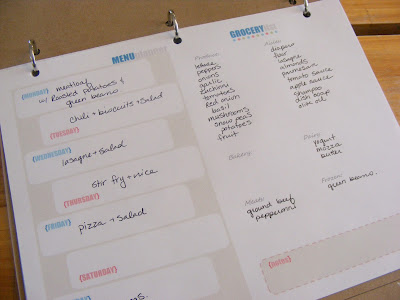 MENU planner
{MONDAY} meatloaf
w/ Roasted Potatoes &
green beans
chili + biscuits + salad
{TUESDAY}
{WEDNESDAY}
lasagna + Salad
stir fry + rice
{THURSDAY}
{FRIDAY} pizza + Salad
{SATURDAY}
GROCERY list
Produce:
peppers
onions
garlic
zuchini
tomatoes
Red onion
basil
mushrooms
snow peas
potatoes
fruit
diapers
almonds
parmesan
tomato sauce
apple sauce
shampoo
dish soap
olive oil
Dairy:
yogurt
mozza
butter
Meats:
ground beef
pepperoni
Frozen:
green beans.
{NOTES}